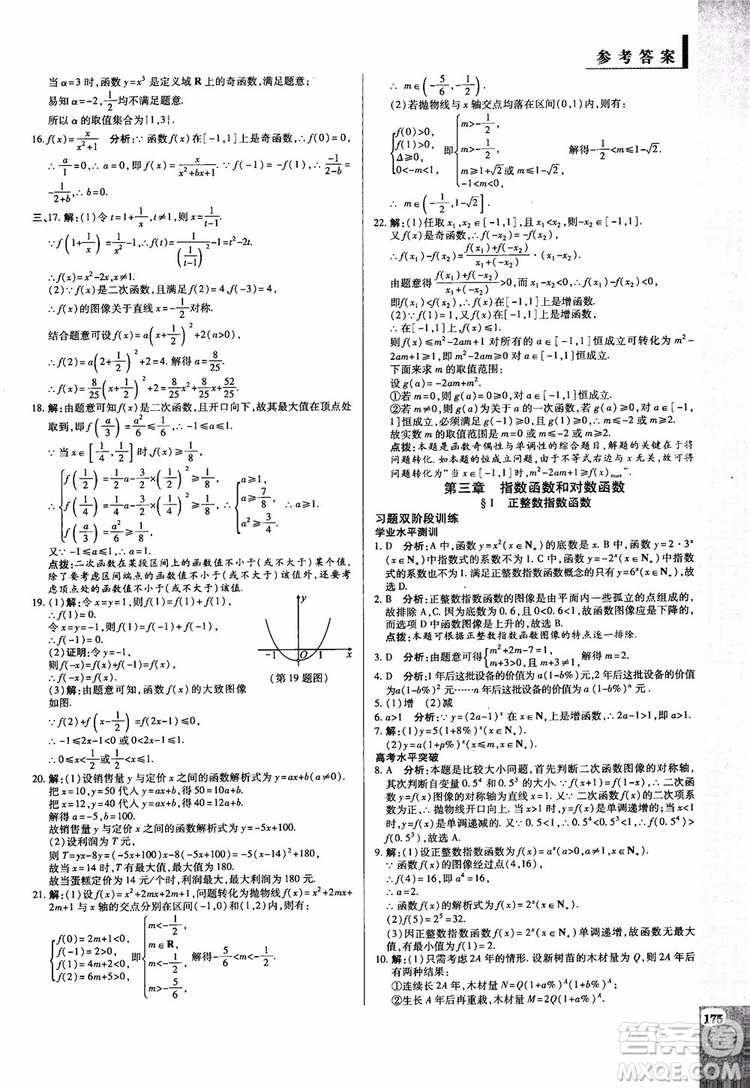 参考答案
当α=3时,函数y=x³是定义域R上的奇函数,满足题意;
易知α=-2,1/2均不满足题意.
所以α的取值集合为{1,3}.
16.f(x)=x/(x²+1) 分析:∵函数f(x)在[-1,1]上是奇函数,∴f(0)=0,
∴a/1=0,∴a=0,即f(x)=x/(x²+bx+1).∵f(-1)=-f(1),∴-1/(2-b)=
-1/(2+b),∴b=0.
三、17.解:(1)令t=1+1/x,t≠1,则x=1/(t-1).
∵f(1+1/x)=1/x²-1,∴f(t)=1/(1/(t-1))²-1=t²-2t.
∴f(x)=x²-2x,x≠1.
(2)∵f(x)是二次函数,且满足f(2)=4,f(-3)=4,
∴f(x)的图像关于直线x=-1/2对称.
结合题意可设f(x)=a(x+1/2)²+2(a>0),
∴f(2)=a(2+1/2)²+2=4,∴a=8/25,
∴f(x)=8/25(x+1/2)²+2=8/25x²+8/25x+52/25.
18.解:由题意可知f(x)是二次函数,且开口向下,故其最大值在顶点处
取到,即f(a/3)=a²/6≤1/6,∴-1≤a≤1.
∵当x∈[1/4,1/2]时,f(x)≥1/8,
∴{f(1/2)≥1/8, f(1/4)≥1/8 即{1/2a-3/2×(1/2)²≥1/8, 1/4a-3/2×(1/4)²≥1/8 ∴{a≥1, a≥7/8 ∴a≥1.
又∵-1≤a≤1,∴a=1.
点拨:二次函数在某段区间上的函数值不小于(或不大于)某个值,
除了要考虑区间端点的函数值不小于(或不大于)这个值外,还要考
虑函数的最小值(或最大值)不小于(或不大于)这个值.
19.(1)解:令x=y=1,得f(1)=f(1)+f(1),∴f(1)=0.
令x=y=-1,得f(-1)=0.
(2)证明:令y=-1,则f(-x)=f(x)+f(-1)=
f(x),∴f(-x)=f(x).
∴f(x)是偶函数.
(3)解:由题意可知,函数f(x)的大致图像
如图.
∵f(2)+f(x-1/2)=f(2x-1)≤0,
∴-1≤2x-1<0或0<2x-1≤1,
∴0≤x<1/2或1/2<x≤1.
(第19题图)
20.解:(1)设销售量y与定价x之间的函数解析式为y=ax+b(a≠0).
把x=10,y=50代入y=ax+b,得50=10a+b.
把x=8,y=60代入y=ax+b,得60=8a+b.
∴a=-5,b=100.
故销售量y与定价x之间的函数解析式为y=-5x+100.
(2)设利润为T元,
则T=yx-8y=(-5x+100)x-8(-5x+100)=-5x²+140x-800,
故当x=14时,T有最大值,最大值为180.
故当蛋糕定价为14元/个时,利润最大,最大利润是180元.
21.解:(1)设f(x)=x²+2mx+2m+1,问题转化为抛物线f(x)=x²+2mx+
2m+1与x轴的交点分别在区间(-1,0)和(1,2)内,则有:
{f(0)=2m+1<0, f(-1)=2>0, f(1)=4m+2<0, f(2)=6m+5>0, 即{m<-1/2, m∈R, m<-1/2, m>-5/6, 解得-5/6<m<-1/2.
∴m∈(-5/6,-1/2).
(2)若抛物线与x轴交点均落在区间(0,1)内,则有:
{f(0)>0, f(1)>0, Δ≥0, 0<-m<1, 即{m>-1/2, m>-1/2, m≥1+√2或m≤1-√2, -1<m<0. 解得-1/2<m≤1-√2.
∴m∈(-1/2,1-√2].
22.解:(1)任取x₁,x₂∈[-1,1],且x₁<x₂,则-x₂∈[-1,1].
又f(x)是奇函数,∴f(-x₂)=-f(x₂).
∴f(x₁)-f(x₂)=f(x₁)+f(-x₂)=(f(x₁)+f(-x₂))/(x₁+(-x₂))·(x₁-x₂).
由题意得(f(x₁)+f(-x₂))/(x₁+(-x₂))>0,且x₁-x₂<0.∴f(x₁)-f(x₂)<0,
即f(x₁)<f(x₂).∴f(x)在[-1,1]上是增函数.
(2)∵f(1)=1,且f(x)在[-1,1]上是增函数,
∴在[-1,1]上,f(x)≤1.
则f(x)≤m²-2am+1对所有的a∈[-1,1]恒成立可转化为m²-
2am+1≥1,即m²-2am≥0在a∈[-1,1]恒成立.
下面来求m的取值范围:
设g(a)=-2am+m².
①若m=0,则g(a)=0≥0,对a∈[-1,1]恒成立.
②若m≠0,则g(a)为关于a的一次函数,若g(a)≥0,对a∈[-1,1]
恒成立,必须满足g(-1)≥0,且g(1)≥0,∴m≤-2或m≥2.
故实数m的取值范围是m=0或m≤-2或m≥2.
点拨:本题是函数奇偶性与单调性的综合题目,解题的关键是分析
题意,如本题中的恒成立问题,由于不等式右边与x无关,则该恒成
立问题可转化为m²-2am+1≥f(x)max.
第三章 指数函数和对数函数
§1 正整数指数函数
习题双阶段训练
学业水平测训
1.D 分析:A中,函数y=xˣ(x∈N₊)的底数是x.B中,函数y=2·3ˣ
(x∈N₊)的指数式的系数不是1.C中,函数y=5ˣ+1(x∈N₊)中5ˣ
后又加了1.满足正整数指数函数概念的只有y=6ˣ(x∈N₊),故
选D.
2.B 分析:正整数指数函数的图像是由平面内一些孤立的点组成的,
故排除A,C.因为底数为0.6,且0<0.6<1,故函数图像应是下降的,
而选项D中函数图像是上升的,故选B.
点拨:本题可根据正整数指数函数图像的特点逐一排除.
3.D 分析:由题意可得{m²+2m-7=1, m+3>0,且m+3≠1, 解得m=2.
4.D 分析:1年后这批设备的价值为a(1-b%)元,2年后这批设备的价值
为a(1-b%)²元……n年后这批设备的价值为a(1-b%)ⁿ元,故选D.
5.(1)增 (2)减
6.a>1 分析:∵y=(2a-1)ˣ(x∈N₊)是增函数,∴2a-1>1,∴a>1.
7.解:(1)y=5(1+8%)ˣ(x∈N₊).
(2)y=(1-1/2)ˣ=(1/2)ˣ(x∈N₊).
高考水平突破
8.A 分析:本题是比较大小问题,首先判断二次函数的对称轴,
其次判断0.5⁴和0.5³的大小.∵f(x+1)=f(-x),∴f(x)图像的对
称轴是x=1/2,∴f(0)=f(1).当x≥1/2时,f(x)是单调递增的;当
x≤1/2时,f(x)是单调递减的.又∵0.5⁴<0.5³<1/2,∴f(0.5⁴)>
f(0.5³),故选A.
9.解:(1)设正整数指数函数为f(x)=aˣ(a>0,a≠1,x∈N₊),
∵函数f(x)的图像经过点(4,16),
∴f(4)=16,即a⁴=16,
∴a=2.
∴函数f(x)的解析式为f(x)=2ˣ(x∈N₊).
(2)f(5)=2⁵=32.
(3)因正整数指数函数f(x)=2ˣ(x∈N₊)单调递增,故函数f(x)无
最大值,有最小值,最小值是f(1)=2.
10.解:(1)只需考虑2A年的情形.设新树苗的木材量为Q,则2A年后
有两种结果:
①连续长2A年,木材量N=Q(1+a%)ᴬ(1+b%)ᴬ;
②生长A年后再重栽,木材量M=2Q(1+a%)ᴬ.
175
答案圈
MXQE.COM